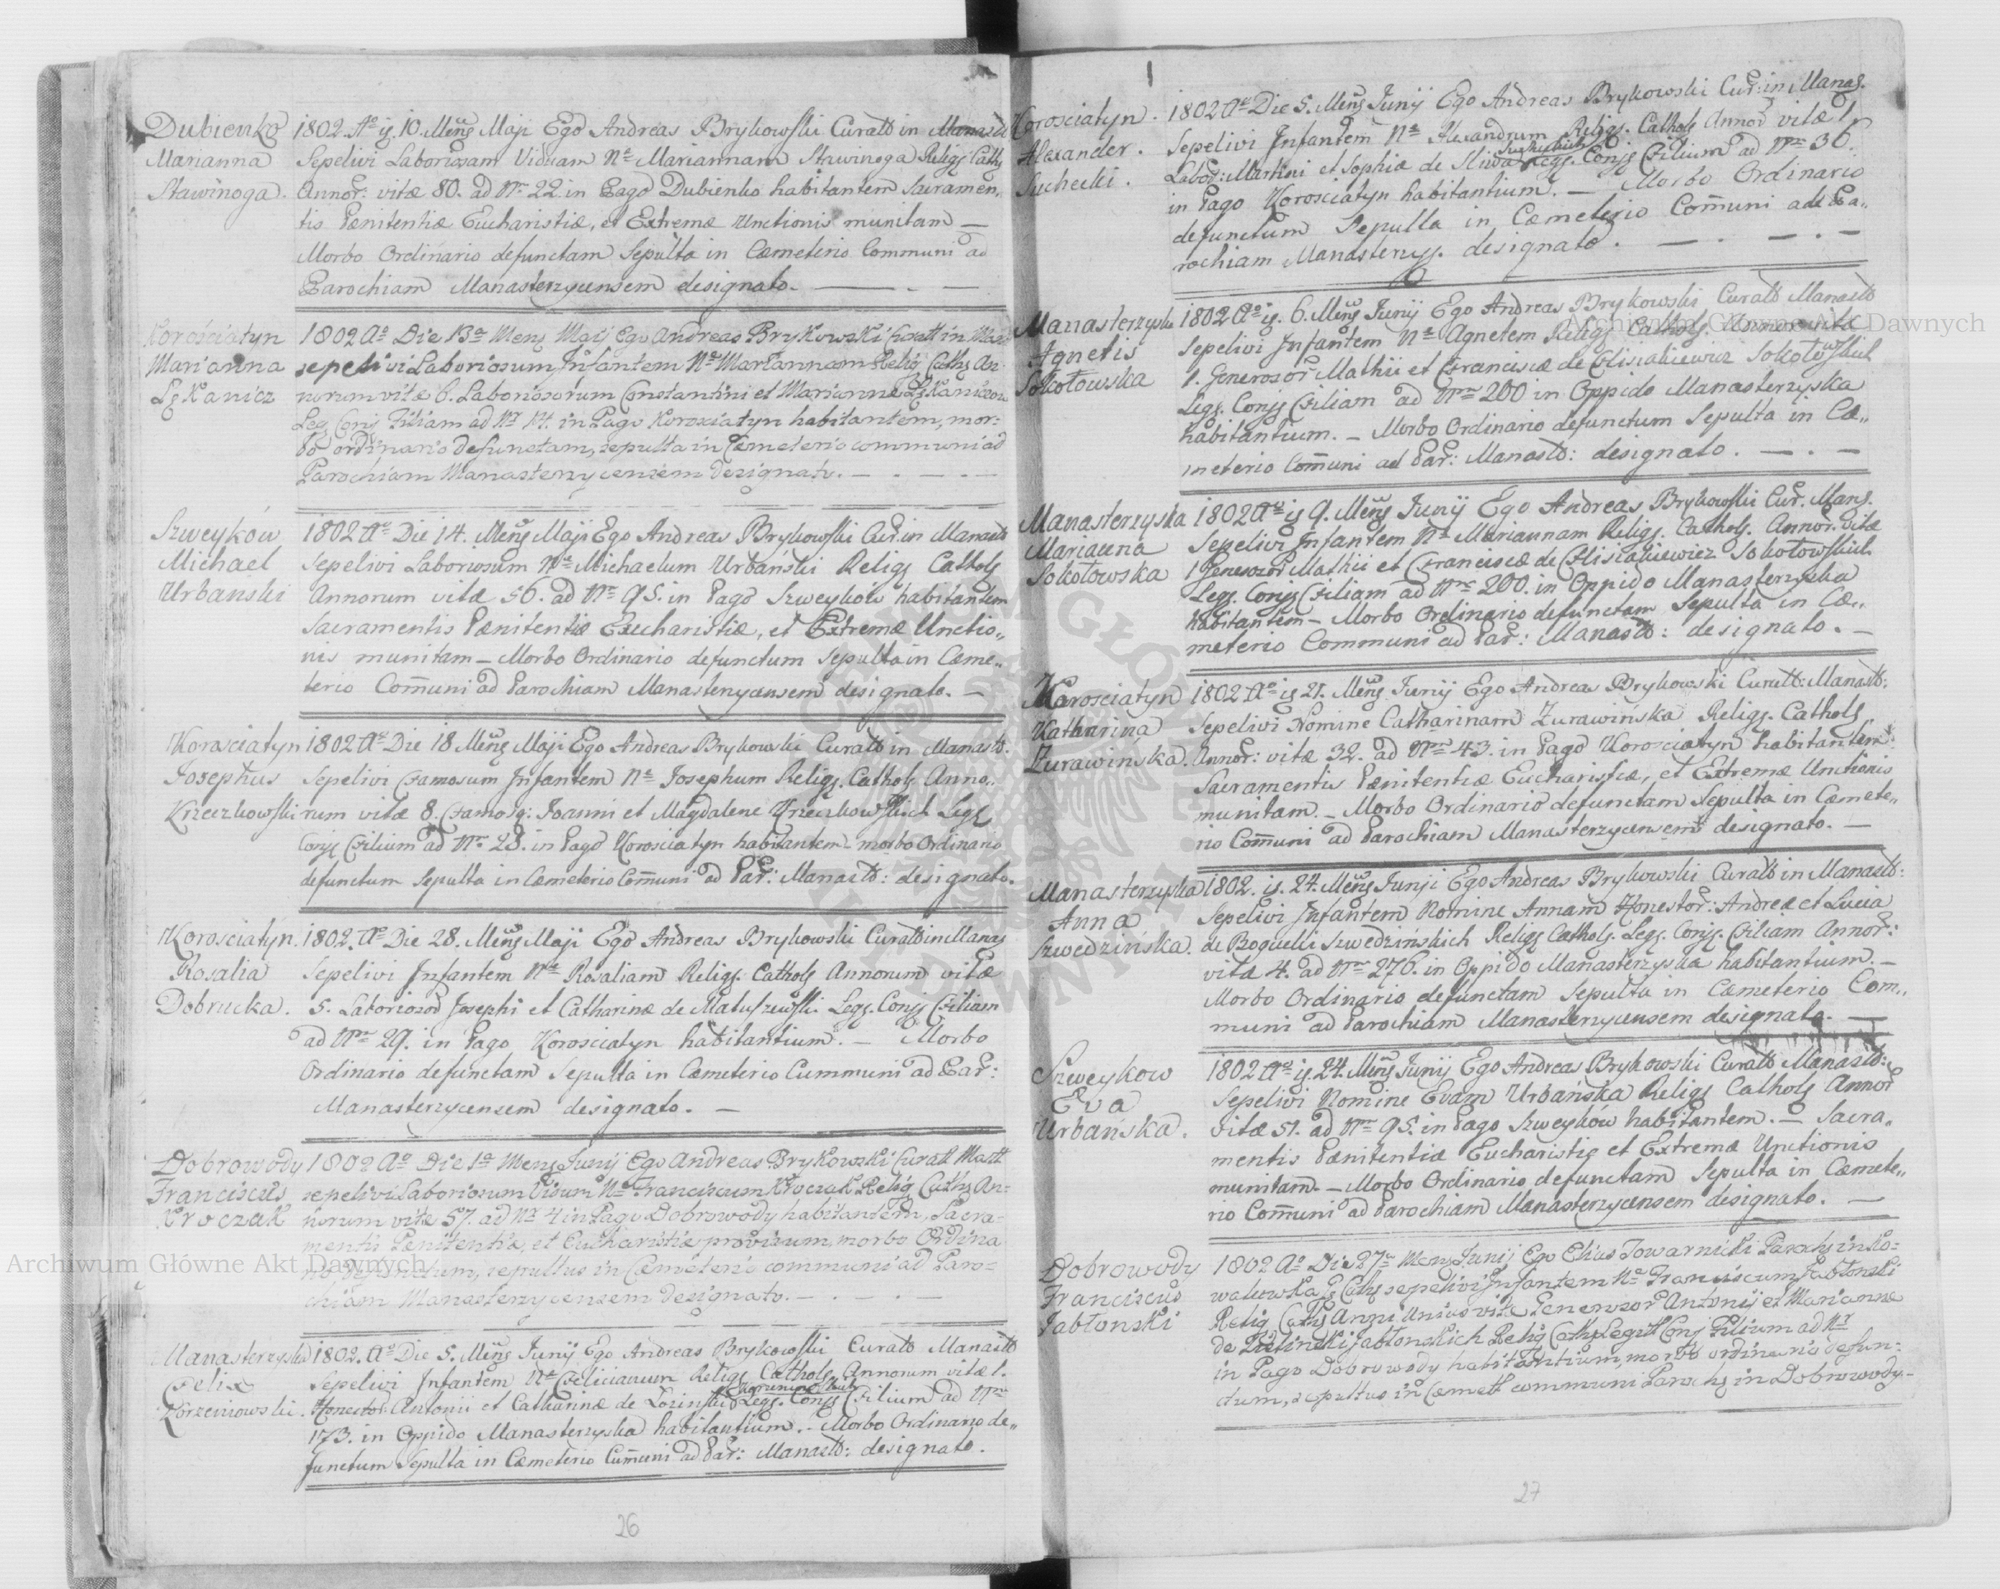 Dubienko
Marianna
Stawinoga.
1802. Ao is. 10. Mens Maji Ego Andreas Brykowski Curatt in Manastt
Sepelivi Laboriosam Viduam Ne Mariannam Stawinoga Religs Caths
Annor: vitæ 80. ad Nr. 22. in Pago Dubienko habitantem Sacramen,,
tis Pænitentiæ Eucharistiæ, et Extremæ Unctionis munitam —
Morbo Ordinario defunctam Sepulta in Cæmeterio Communi ad
Parochiam Manasterzycensem designato. — . —
Korościatyn
Marianna
1802 Ao Die 13a Mens Maij Ego Andreas Brykowski Curatt in Man
sepelivi Laboriosum Infantem Ne Mariannam Relig Caths An
norum vitæ 6. Laboriosorum Constantini et Mariannæ
Leg Conj Filiam ad Nr 14. in Pago Korosciatyn habitantem, mor:
bo ordinario defunctam, sepulta in Cæmeterio communi ad
Parochiam Manasterzycensem designato. — . —
Szweyków
Michael
Urbanski
1802 Ao Die 14. Mens Maji Ego Andreas Brykowski Cur. in Manastt
Sepelivi Laboriosum Ne Michaelum Urbański Religs Cathols
Annorum vitæ 56. ad Nr 95. in Pago Szweykow habitantem
Sacramentis Pænitentiæ Eucharistiæ, et Extremæ Unctio,,
nis munitam — Morbo Ordinario defunctum Sepulta in Cæme,,
terio Com̄uni ad Parochiam Manasterzycensem designato. —
Korosciatyn
Josephus
Krzeczkowski
1802 Ao Die 18 Mens Maji Ego Andreas Brykowski Curatt in Manastt.
Sepelivi Famosum Infantem Ne Josephum Religs. Cathols Anno,,
rum vitæ 8. Famosg: Joanni et Magdalene Krzeczkowskich Legs
Conjs Filium ad Nr. 28. in Pago Korosciatyn habitantem – morbo Ordinario
defunctum Sepulta in Cæmeterio Com̄uni ad Par: Manastt: designato.
Korosciatyn.
Rosalia
Dobrucka.
1802. Ao Die 28. Mens Maji Ego Andreas Brykowski Curatt in Manas
Sepelivi Infantem Ne Rosaliam Religs. Cathols Annorum vitæ
5. Laboriosor Josephi et Catharinæ de Matuszewski Legs. Conjs Filiam
ad Nr 29. in Pago Korosciatyn habitantium. — Morbo
Ordinario defunctam Sepulta in Cæmeterio Cummuni ad Par:
Manasterzycensem designato. —
Dobrowody
Franciscus
Kroczak
1802 Ao Die 1a Mens Junij Ego Andreas Brykowski Curatt Mastt
sepelivi Laboriosum Virum Ne Franciscum Kroczak Relig Caths An=
norum vitæ 57. ad Nr 4 in Pago Dobrowody habitantem, Sacra-
mentis Penitentiæ, et Eucharistiæ provisum, morbo Ordina
rio defunctum, sepultus in Cæmeterio communi ad Paro-
chiam Manasterzycensem designato. — . — . —
Manasterzyska
Felix
Korzeniowski.
1802. Ao Die 5. Mens Junij Ego Andreas Brykowski Curatt Manastt
Sepelivi Infantem Ne Felicianum Religs Cathols Annorum vitæ 1.
Honestor: Antonii et Catharinæ de Legs. Conjs Filium ad Nr
173. in Oppido Manasterzyska habitantium. – Morbo Ordinario de,,
functum Sepulta in Cæmeterio Cum̄uni ad Par: Manastt: designato.
26
Korosciatyn.
Alexander.
Suchecki.
1802 Ao Die 5. Mens Junij Ego Andreas Brykowski Cur: in Manas.
Sepelivi Infantem Ne Alexandrum Religs. Cathols Annor vitæ 1.
Labor: Martini et Sophiæ de Sliwa Legs. Conjs Filium ad Nr 36.
in Pago Korosciatyn habitantium. — Morbo Ordinario
defunctum Sepulta in Cæmeterio Com̄uni ad Pa,,
rochiam Manasterzys. designato. — . — . —
Manasterzyska
Agnetis
Sokołowska
1802 Ao is. 6. Mens Junij Ego Andreas Brykowski Curatt Manastt
Sepelivi Infantem Ne Agnetem Religs Cathols. Annor vitæ
1. Generosor Mathii et Franciscæ de Sokołowskich
Legs. Conjs Filiam ad Nr 200 in Oppido Manasterzyska
habitantium. – Morbo Ordinario defunctum Sepulta in Cæ,,
meterio Com̄uni ad Par: Manastt: designato. — . —
Manasterzyska
Marianna
Sokołowska
1802 Ao is 9. Mens Junij Ego Andreas Brykowski Cur. Mans.
Sepelivi Infantem Ne Mariannam Religs. Cathols. Annor. vitæ
1 Generosor Mathii et Franciscæ de Sokołowskich
Legs. Conjs Filiam ad Nr 200. in Oppido Manasterzyska
habitantem – Morbo Ordinario defunctam Sepulta in Cæ,,
meterio Communi ad Par: Manastt: designato. —
Korosciatyn
Katharina
Zurawinska.
1802 Ao is 21. Mens Junij Ego Andreas Brykowski Curatt: Manastt:
Sepelivi Nomine Catharinam Zurawińska Religs. Cathols
Annor: vitæ 32. ad Nr 43. in Pago Korosciatyn habitantem
Sacramentis Pænitentiæ Eucharistiæ, et Extremæ Unctionis
munitam. – Morbo Ordinario defunctam Sepulta in Cæmete,,
rio Com̄uni ad Parochiam Manasterzycensem designato. —
Manasterzyska
Anna
Szwedzińska.
1802. is. 24. Mens Junji Ego Andreas Brykowski Curatt in Manastt:
Sepelivi Infantem Nomine Annam Honestor: Andreæ et Lucia
de Boguelli Szwedzińskich Religs Cathols. Legs. Conjs. Filiam Annor:
vitæ 4. ad Nr 276. in Oppido Manasterzyska habitantium. —
Morbo Ordinario defunctam Sepulta in Cæmeterio Com,,
muni ad Parochiam Manasterzycensem designato. —
Szweykow
Eva
Urbańska.
1802 Ao is 24. Mens Junij Ego Andreas Brykowski Curatt Manastt:
Sepelivi Nomine Evam Urbańska Religs Cathols Annor
vitæ 51. ad Nr 95. in Pago Szweyków habitantem. — Sacra,,
mentis Pænitentiæ Eucharistiæ et Extremæ Unctionis
munitam. – Morbo Ordinario defunctam Sepulta in Cæmete,,
rio Com̄uni ad Parochiam Manasterzycensem designato. —
Dobrowody
Franciscus
Jabłonski
1802 Ao Die 27a Mens Junij Ego Elias Towarnicki Parochs in Ko=
walowka Gr Caths sepelivi Infantem Ne Franciscum Jabłonski
Relig Caths Anni Unius vitæ Generosor Antonij et Mariannæ
de Zielinski Jabłonskich Relig Caths Legitt Conj Filium ad Nr
in Pago Dobrowody habitantium, morbo ordinario defun-
ctum, sepultus in Cæmett communi Parochs in Dobrowody.–
27
Archiwum Główne Akt Dawnych
Archiwum Główne Akt Dawnych